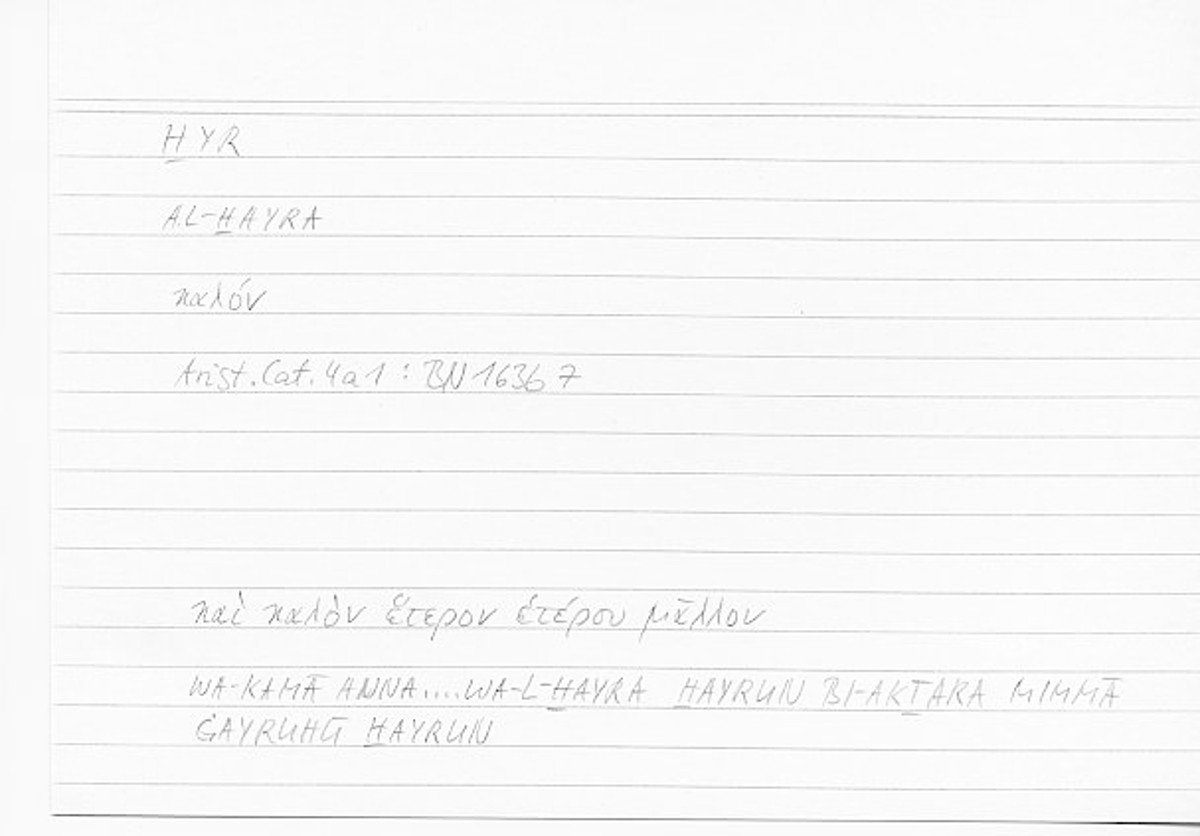 H̱YR
AL-H̱AYRA
καλόν
Arist. Cat. 4a1 : BN 1636 7
καὶ καλὸν ἕτερον ἑτέρου μᾶλλον
WA-KAMĀ ANNA....WA-L-H̱AYRA H̱AYRUN BI-AKṮARA MIMMĀ
ĠAYRUHŪ H̱AYRUN